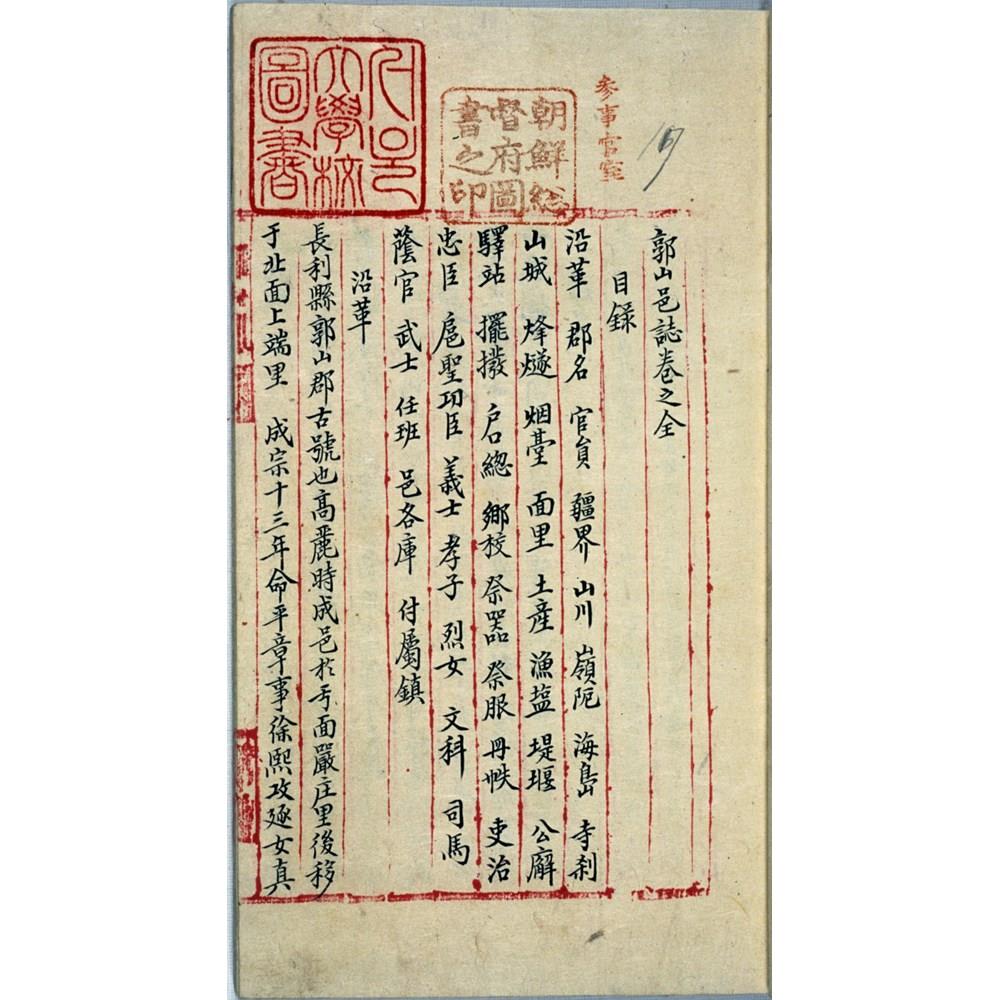 參事官室
朝鮮総
督府圖
書之印
서울
大學校
圖書
郭山邑誌卷之全
目錄
沿革 郡名 官員 疆界 山川 嶺阨 海島 寺刹
山城 烽燧 烟臺 面里 土産 漁塩 堤堰 公廨
驛站 擺撥 戶總 鄉校 祭器 祭服 冊帙 吏治
忠臣 扈聖功臣 義士 孝子 烈女 文科 司馬
蔭官 武士 任班 邑各庫 付屬鎮
沿革
長利縣郭山郡古號也高麗時成邑於亐面嚴庄里後移
于北面上端里 成宗十三年命平章事徐熙攻逐女真